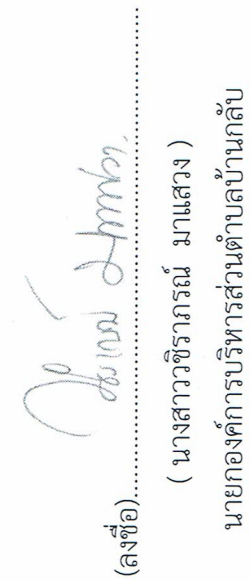 (ลงชื่อ)......................................................
( นางสาววชิราภรณ์ มาแสวง )
นายกองค์การบริหารส่วนตำบลบ้านกลับ